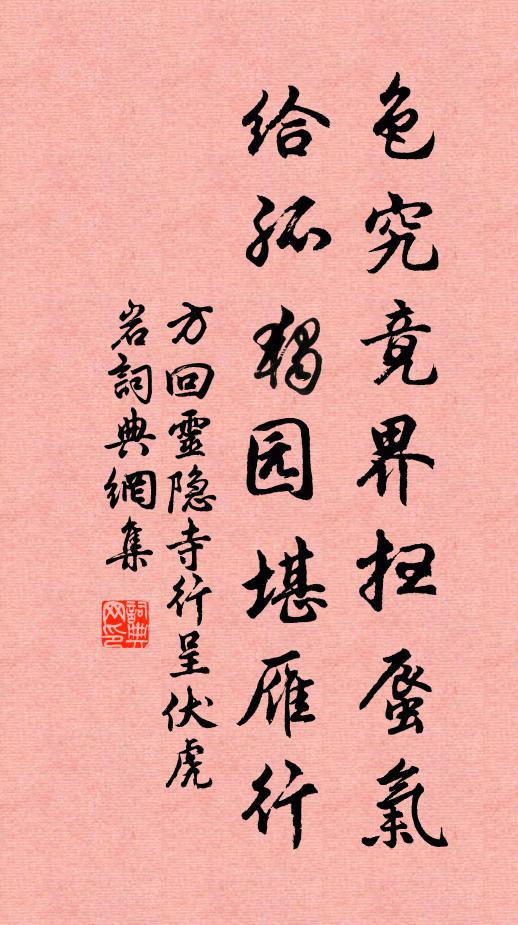 色究竟界扫蜃氣
给孤獨园堪雁行
方回靈隐寺行呈伏虎
岩詞典網集
詞典网印